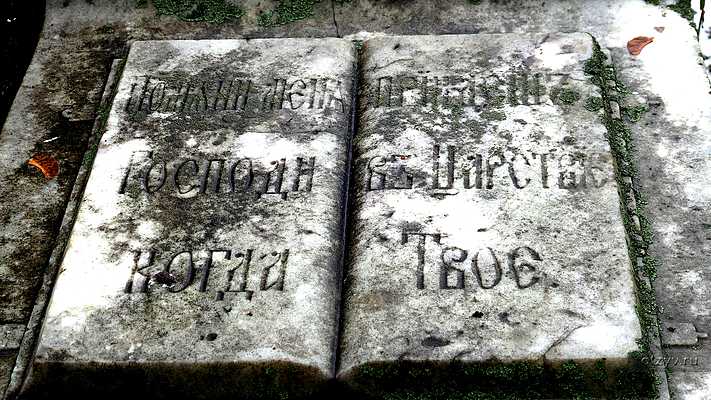 Помяни меня
Господи
когда
пріидешъ
въ Царствіе
Твое
otzyv.ru